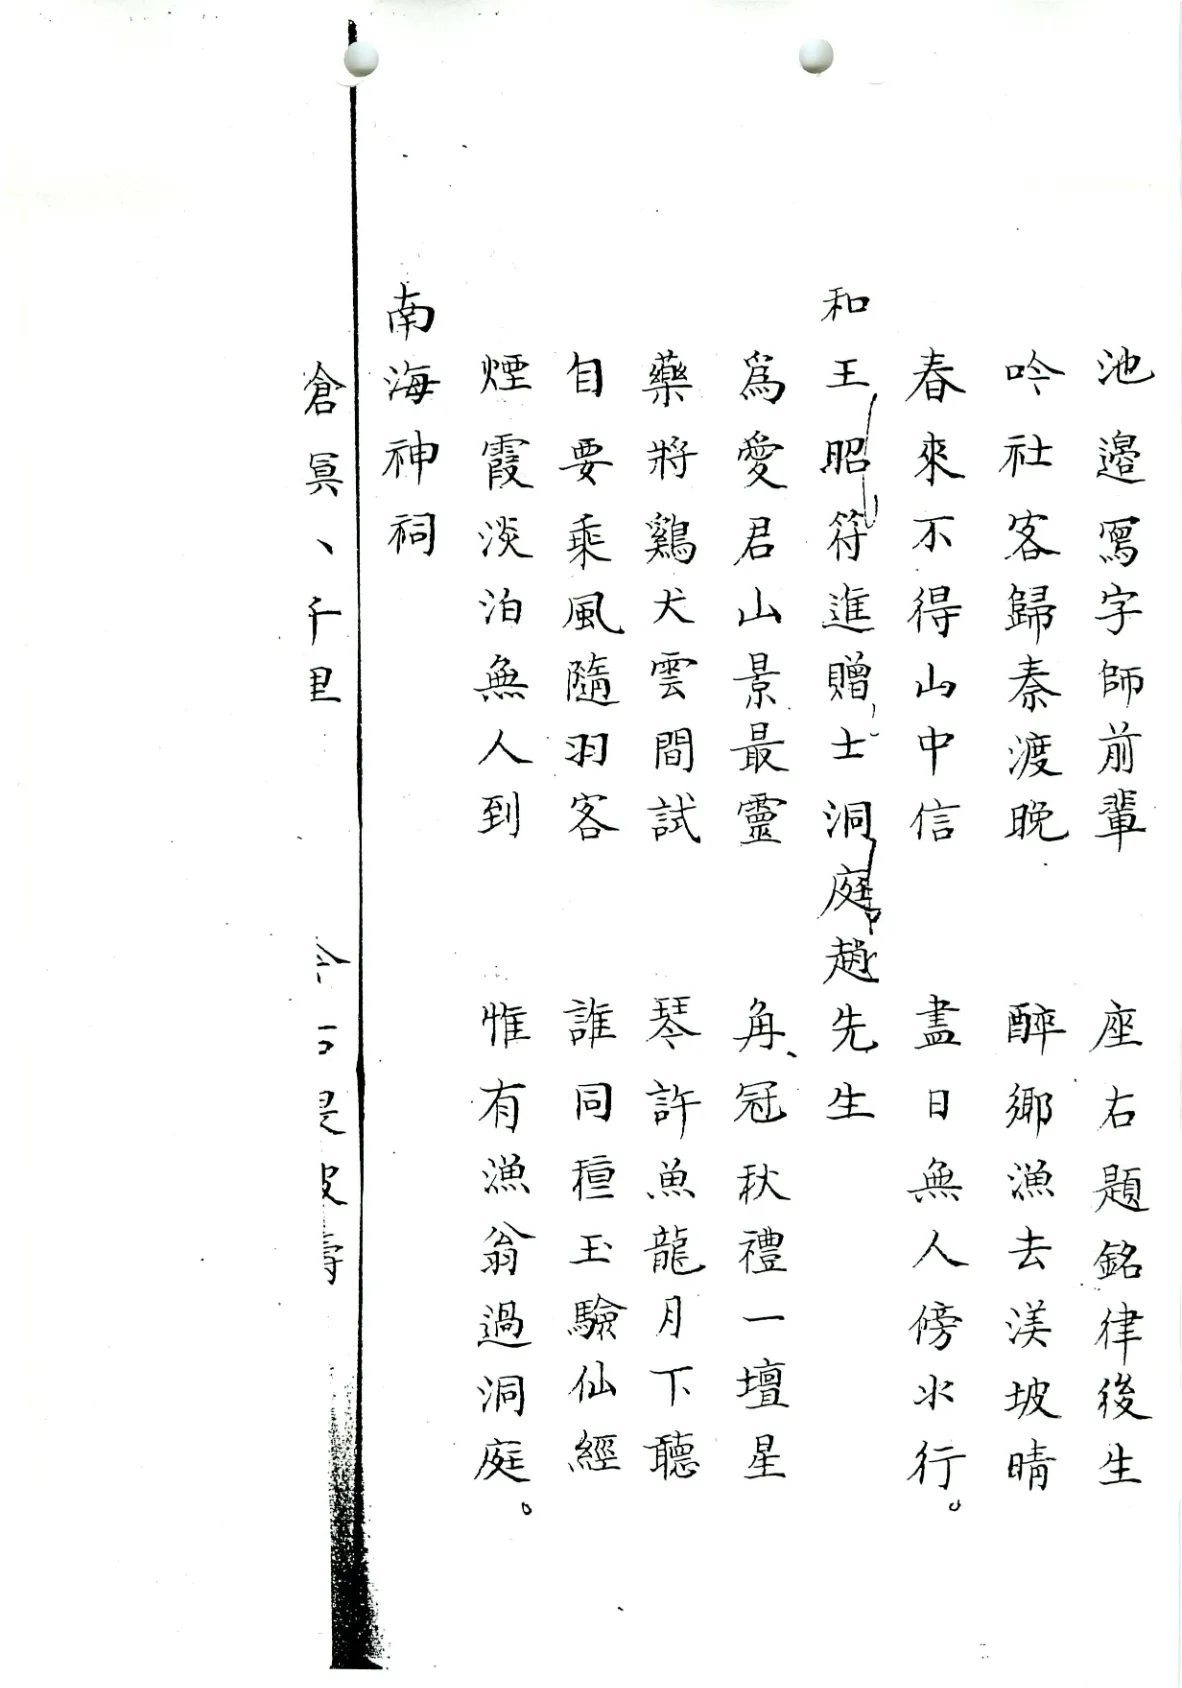 池邉寫字師前輩　座右題銘律後生
吟社客歸秦渡晚　醉鄉漁去渼坡晴
春來不得山中信　盡日無人傍水行。
和王昭符進贈士洞庭趙先生
為愛君山景最靈　角冠秋禮一壇星
藥將鷄犬雲間試　琴許魚龍月下聽
自要乘風隨羽客　誰同種玉驗仙經
煙霞淡泊無人到　惟有漁翁過洞庭。
南海神祠
千里